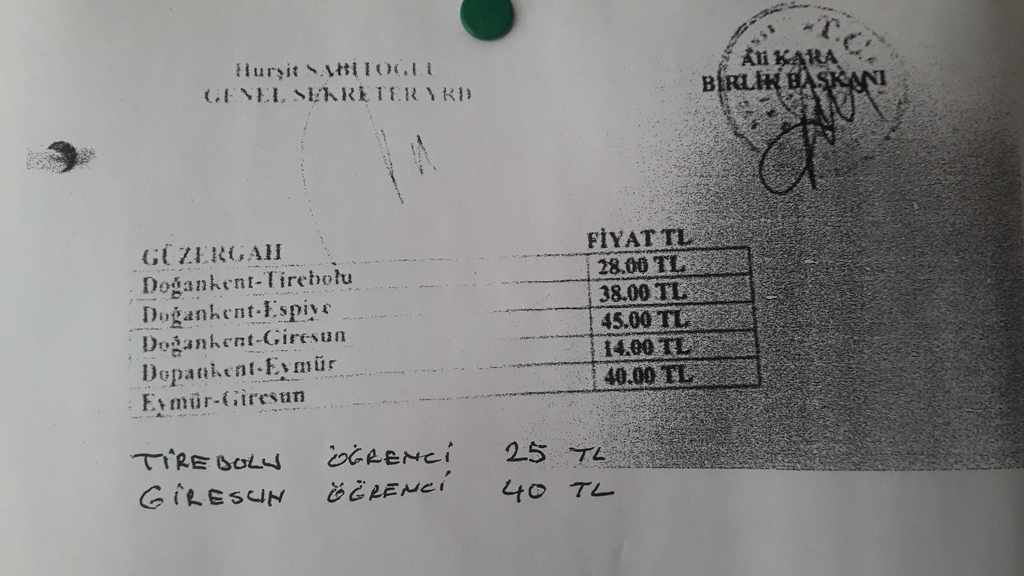 Hurşit SABİTOĞLU
GENEL SEKRETER YRD
T.C.
Ali KARA
BİRLİK BAŞKANI
GÜZERGAH FİYAT TL
Doğankent-Tirebolu 28.00 TL
Doğankent-Espiye 38.00 TL
Doğankent-Giresun 45.00 TL
Dopankent-Eymür 14.00 TL
Eymür-Giresun 40.00 TL
TİREBOLU ÖĞRENCİ 25 TL
GİRESUN ÖĞRENCİ 40 TL